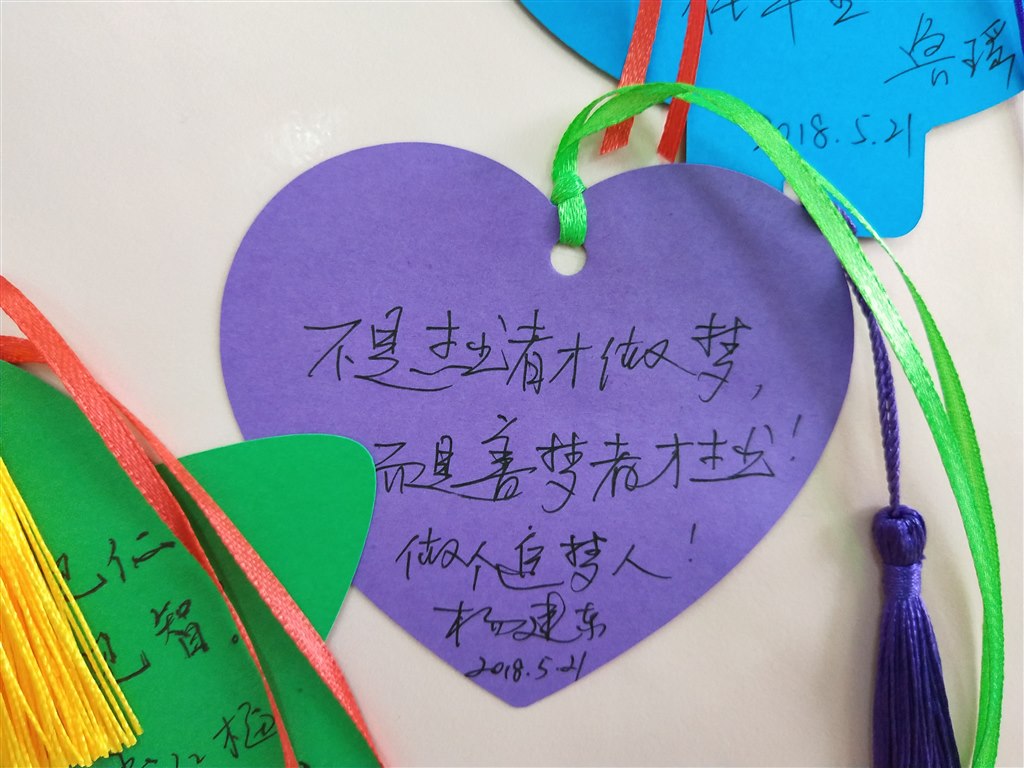 鲁瑶
2018.5.21
不是杰出者才做梦,
而是善梦者才杰出!
做个追梦人!
杨建东
2018.5.21
仁
智.